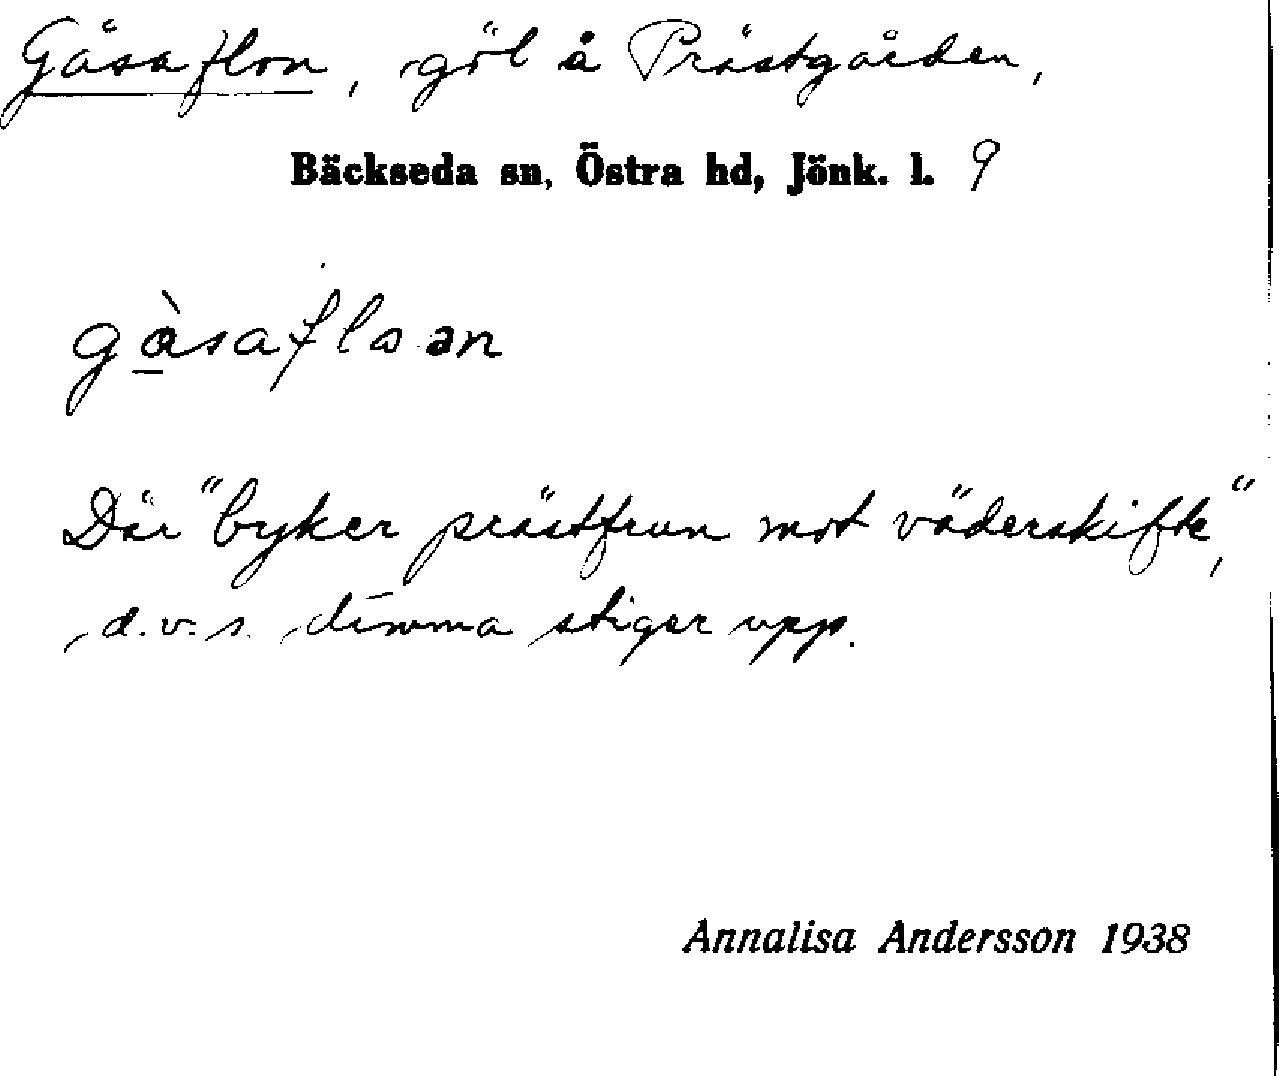 Gåsaflon, göl å Prästgården,
Bäckseda sn, Östra hd, Jönk. l. 9
gàsafloan
Där "byker prästfrun mot väderskifte",
d.v.s. dimma stiger upp.
Annalisa Andersson 1938